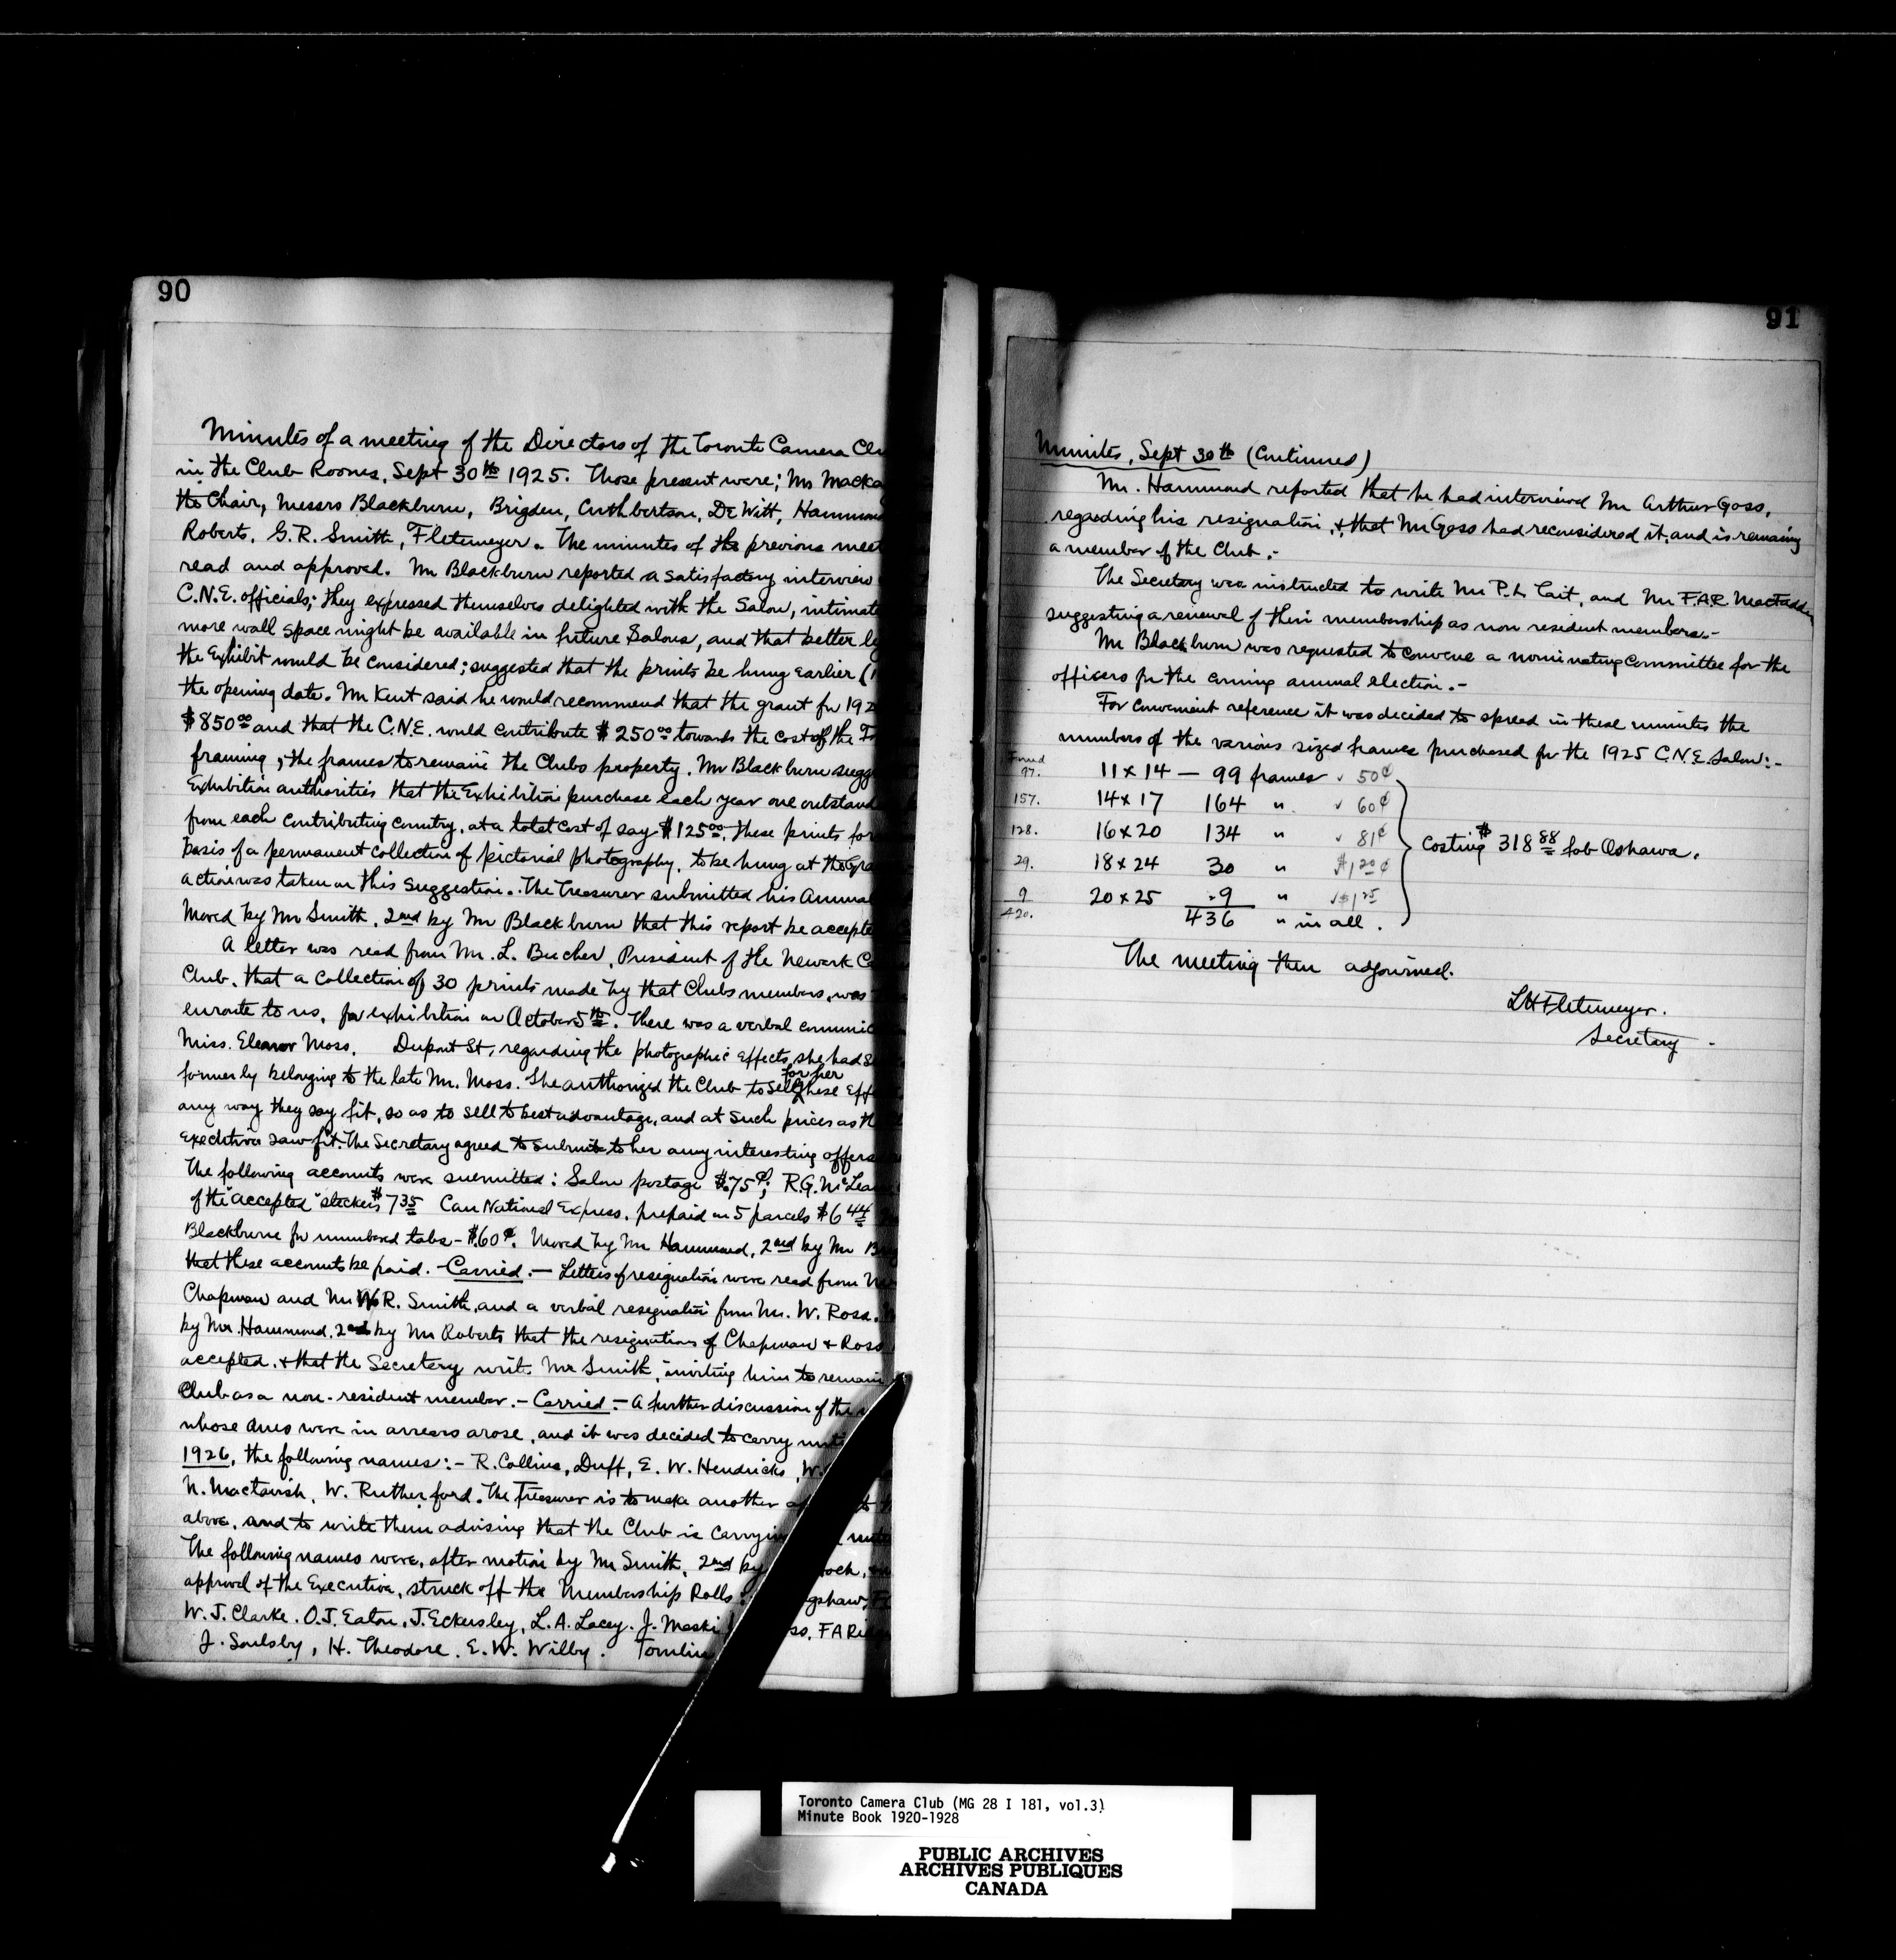 90
Minutes of a meeting of the Directors of the Toronto Camera Clu
in the Club Rooms, Sept 30th 1925. Those present were; Mr Macka
the Chair, Messrs Blackburn, Brigden, Cuthbertson, De Witt, Hammond
Roberts, G.R. Smith, Fletemeyer. The minutes of the previous meet
read and approved. Mr Blackburn reported a satisfactory interview
C.N.E. officials; they expressed themselves delighted with the Salon, intimate
more wall space might be available in future Salons, and that better l
the Exhibit would be considered; suggested that the prints be hung earlier (
the opening date. Mr Kent said he would recommend that the grant for 192
$850.00 and that the C.N.E. would contribute $250.00 towards the cost of the
framing, the frames to remain the Clubs property. Mr Blackburn sugg
Exhibition authorities that the Exhibition purchase each year one outstand
from each contributing country, at a total cost of say $125.00, these prints for
basis of a permanent collection of pictorial photography, to be hung at the Gra
action was taken on this suggestion. The Treasurer submitted his Annual
Moved by Mr Smith, 2nd by Mr Blackburn that this report be accepte
A letter was read from Mr. L. Bucher, President of the Newark C
Club, that a collection of 30 prints made by that Clubs members, was
enroute to us, for exhibition on October 5th. There was a verbal communic
Miss. Eleanor Moss, Dupont St, regarding the photographic effects she had
formerly belonging to the late Mr. Moss. She authorized the Club to sell for her these Eff
any way they say fit, so as to sell to best advantage, and at such prices as th
executive saw fit. The Secretary agreed to submit to her any interesting offers
The following accounts were submitted: Salon postage $.75¢; R.G. McLea
of the "accepted" stickers $7.35 Can National Express, prepaid on 5 parcels $6.44
Blackburn for numbered tabs - $.60¢. Moved by Mr Hammond, 2nd by Mr B
that these accounts be paid. - Carried. - Letters of resignation were read from
Chapman and Mr W.R. Smith, and a verbal resignation from Mr. W. Ross.
by Mr. Hammond, 2nd by Mr Roberts that the resignations of Chapman & Ross
accepted, & that the Secretary write Mr Smith, inviting him to remain
Club as a non-resident member. - Carried - A further discussion of the
whose dues were in arrears arose, and it was decided to carry unti
1926, the following names: - R. Collins, Duff, E. W. Hendricks, W.
N. Mactavish, W. Rutherford. The Treasurer is to make another
above, and to write them advising that the Club is carryin
The following names were, after motion by Mr Smith, 2nd by
approval of the Executive, struck off the Membership Rolls: gshaw,
W.J. Clarke, O.J. Eaton, J. Eckersley, L.A. Lacey, J. Maski ss, F A Ri
J. Soulsby, H. Theodore, E.W. Wilby. Tomlin
91
Minutes, Sept 30th (Continued)
Mr. Hammond reported that he had interviewed Mr Arthur Goss,
regarding his resignation, & that Mr Goss had reconsidered it, and is remaining
a member of the Club. -
The Secretary was instructed to write Mr P.L. Tait, and Mr F.A.R. MacFadden
suggesting a renewal of their membership as non resident members. -
Mr Blackburn was requested to convene a nominating Committee for the
officers for the coming annual election. -
For convenient reference it was decided to spread in these minutes the
numbers of the various sized frames purchased for the 1925 C.N.E. Salon: -
Found
97. 11 x 14 — 99 frames ✓ 50¢
157. 14 x 17 164 " ✓ 60¢
128. 16 x 20 134 " ✓ 81¢
Costing $318.88 fob Oshawa.
29. 18 x 24 30 " $1.20¢
9 20 x 25 9 " ✓$1.25
420. 436 " in all.
The meeting then adjourned.
L H Fletemeyer.
Secretary -
Toronto Camera Club (MG 28 I 181, vol.3)
Minute Book 1920-1928
PUBLIC ARCHIVES
ARCHIVES PUBLIQUES
CANADA